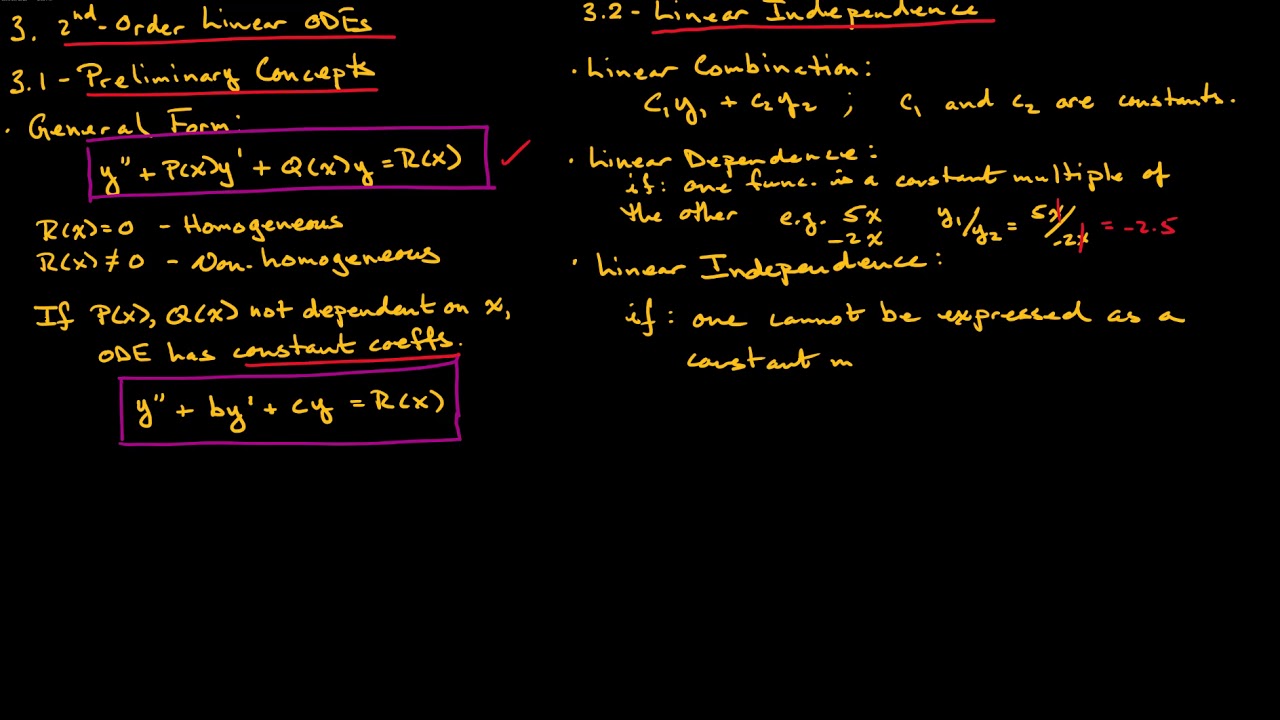 3. 2nd-Order Linear ODEs
3.1 - Preliminary Concepts
· General Form:
y'' + P(x)y' + Q(x)y = R(x) ✓
R(x)=0 - Homogeneous
R(x)≠0 - Non-homogeneous
If P(x), Q(x) not dependent on x,
ODE has constant coeffs.
y'' + by' + cy = R(x)
3.2 - Linear Independence
· Linear Combination:
c₁y₁ + c₂y₂ ; c₁ and c₂ are constants.
· Linear Dependence:
if: one func. is a constant multiple of
the other e.g. 5x y₁/y₂ = 5x/-2x = -2.5
-2x
· Linear Independence:
if: one cannot be expressed as a
constant m